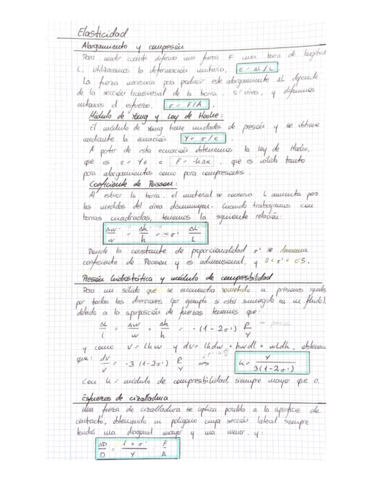 Elasticidad
Alargamiento y compresión
Para medir cuánto deforma una fuerza F una barra de longitud
L, utilizamos la deformación unitaria, ε = ΔL / L
La fuerza necesaria para producir este alargamiento depende
de la sección transversal de la barra, y definimos
entonces el esfuerzo, σ = F/A.
Módulo de Young y Ley de Hooke:
El módulo de Young tiene unidades de presión y se obtiene
mediante la ecuación Y = σ/ε
A partir de esta ecuación obtenemos la ley de Hooke,
que es σ = Yε o F = kΔx, que es válida tanto
para alargamientos como para compresiones.
Coeficiente de Poisson:
Al estirar la barra, el material se L aumenta pero
las medidas del área disminuyen. Cuando trabajamos con
barras cuadradas, tenemos la siguiente relación:
Δw/w = Δh/h = -σ · ΔL/L
Donde la constante de proporcionalidad σ se denomina
coeficiente de Poisson y es adimensional, y 0 < σ < 0.5.
Presión hidrostática y módulo de compresibilidad
Para un sólido que se encuentra sometido a presiones iguales
por todas las direcciones (por ejemplo si está sumergido en un fluido),
debido a la superposición de fuerzas tenemos que:
Δl/l = Δw/w = Δh/h = -(1-2σ) P/Y
y como V = lhw y dV = lhdw + hwdl + wldh, obtenemos
que: dV/V = -3(1-2σ) P/Y ⇒ k = Y / 3(1-2σ)
Con k = módulo de compresibilidad siempre mayor que 0.
Esfuerzo de cizalladura
Una fuerza de cizalladura se aplica paralela a la superficie de
contacto, obteniendo un polígono cuya sección lateral siempre
tendrá una diagonal mayor y una menor, y:
ΔD/D = 1+σ/Y · F/A